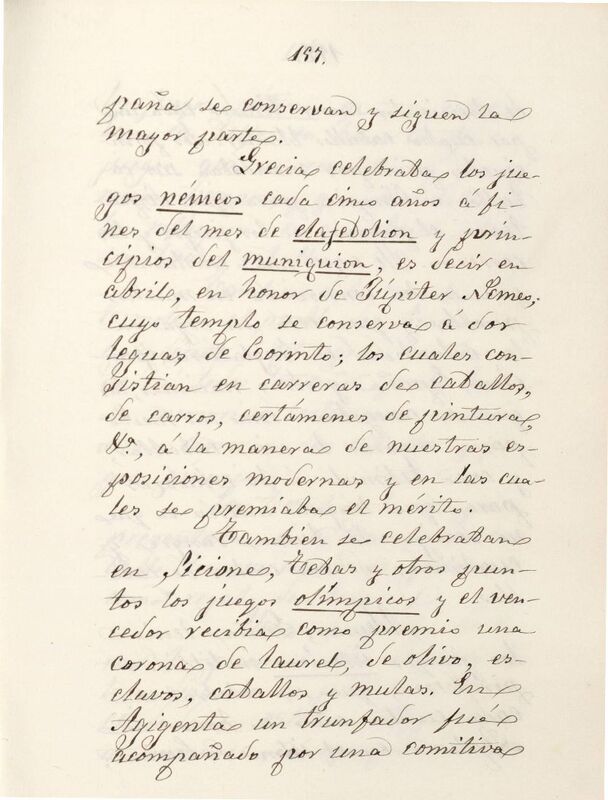 157.
paña se conservan y siguen la
mayor parte.
Grecia celebraba los jue-
gos némeos cada cinco años á fi-
nes del mes de elafebolion y prin-
cipios del muniquion, es decir en
abril, en honor de Júpiter Nemeo,
cuyo templo se conserva á dos
leguas de Corinto; los cuales con-
sistian en carreras de caballos,
de carros, certámenes de pintura,
&ª, á la manera de nuestras es-
posiciones modernas y en las cua-
les se premiaba el mérito.
Tambien se celebraban
en Sicione, Tebas y otros pun-
tos los juegos olímpicos y el ven-
cedor recibia como premio una
corona de laurel, de olivo, es-
clavos, caballos y mulas. En
Agigenta un trunfador fué
acompañado por una comitiva